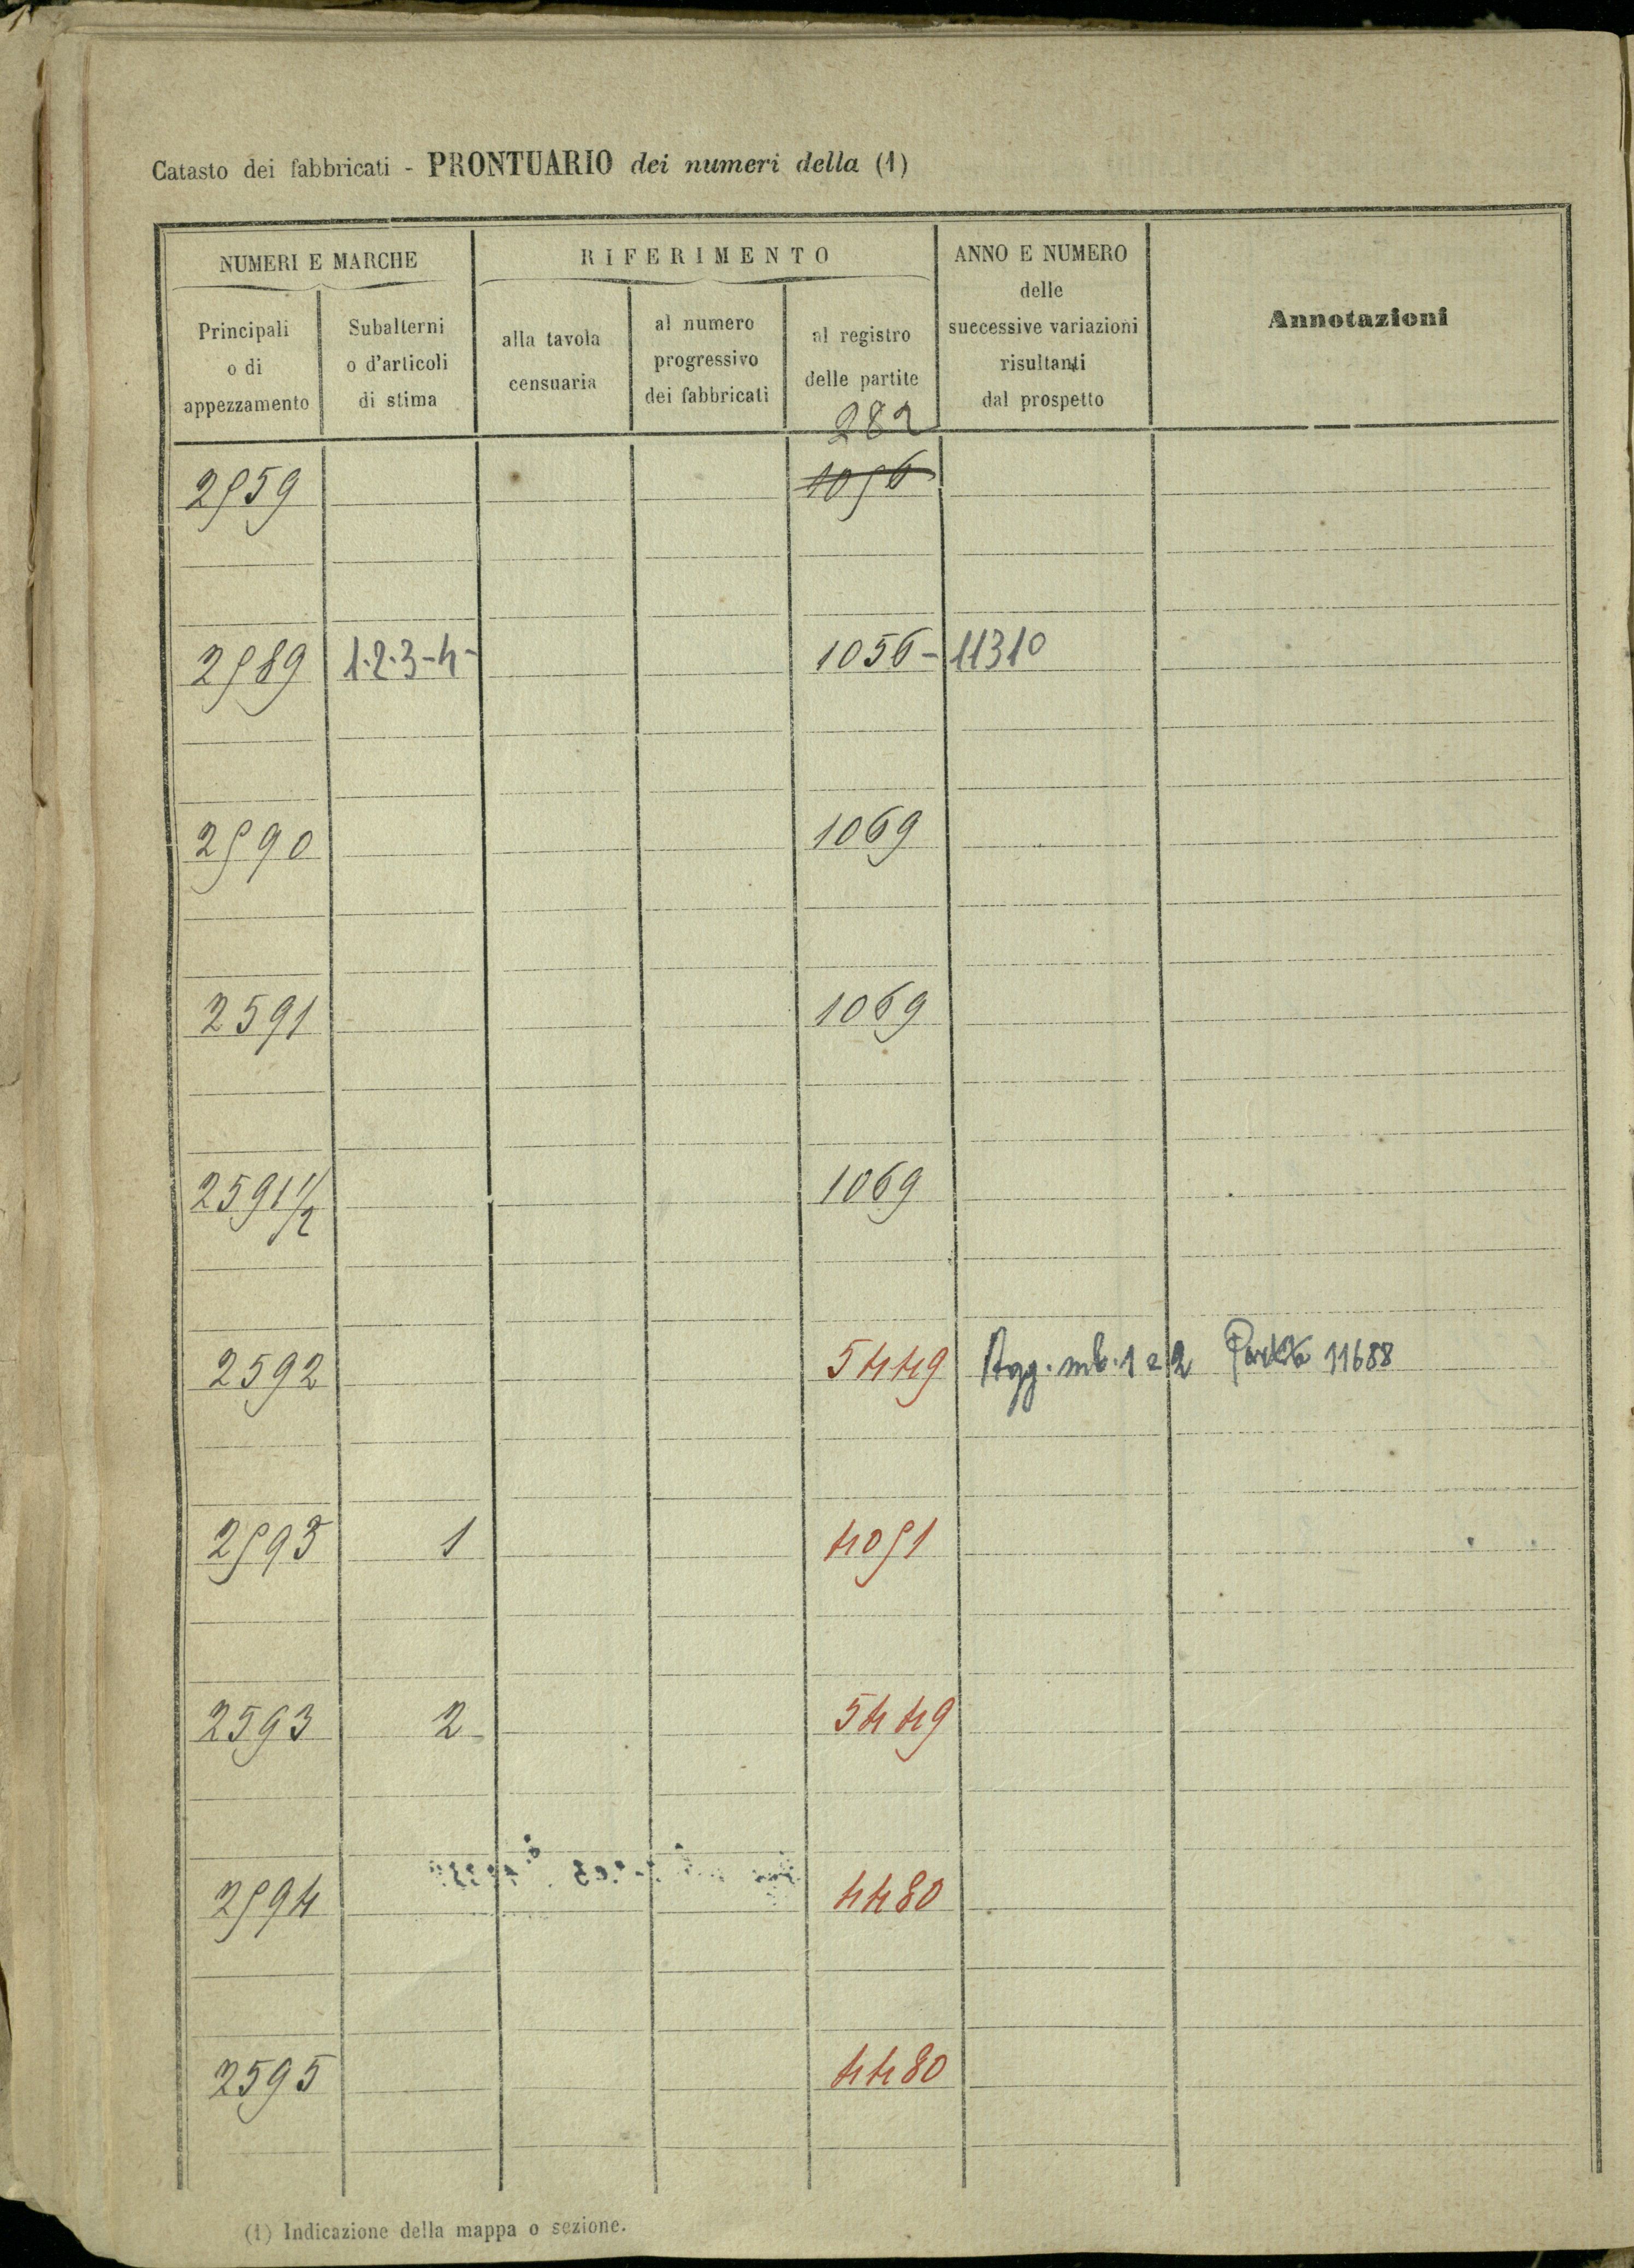 Catasto dei fabbricati - PRONTUARIO dei numeri della (1)
NUMERI E MARCHE
RIFERIMENTO
ANNO E NUMERO
delle
successive variazioni
risultanti
dal prospetto
Annotazioni
Principali
o di
appezzamento
Subalterni
o d'articoli
di stima
alla tavola
censuaria
al numero
progressivo
dei fabbricati
al registro
delle partite
282
2559 1056
2589 1.2.3-4- 1056- 11310
2590 1069
2591 1069
2591 1/2 1069
2592 5449 Agg. sub. 1 e 2 Partita 11688
2593 1 4051
2593 2 5449
2594 4480
2595 4480
(1) Indicazione della mappa o sezione.